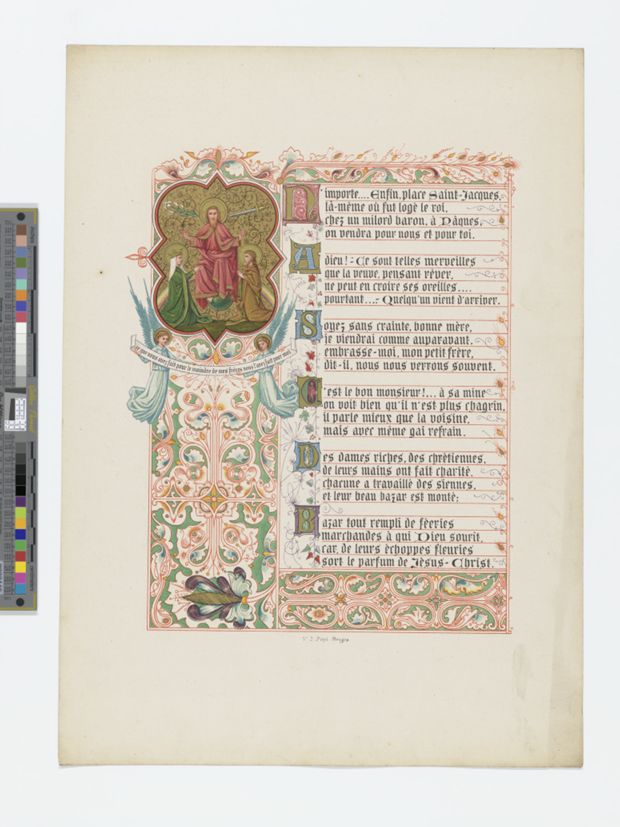 N'importe.... Enfin, place Saint-Jacques,
là-même où fut logé le roi,
chez un milord baron, à Pâques,
on vendra pour nous et pour toi.
Adieu!- Ce sont telles merveilles
que la veuve, pensant rêver,
ne peut en croire ses oreilles....
pourtant...- Quelqu'un vient d'arriver.
Soyez sans crainte, bonne mère,
je viendrai comme auparavant.
embrasse-moi, mon petit frère,
dit-il, nous nous verrons souvent.
C'est le bon monsieur!... à sa mine
on voit bien qu'il n'est plus chagrin,
il parle mieux que la voisine,
mais avec même gai refrain.
Des dames riches, des chrétiennes,
de leurs mains ont fait charité,
chacune a travaillé des siennes,
et leur beau bazar est monté;
Bazar tout rempli de féeries
marchandes à qui Dieu sourit,
car, de leurs échoppes fleuries
sort le parfum de Jésus-Christ.
que vous avez fait pour le moindre de mes frères vous l'avez fait pour moi